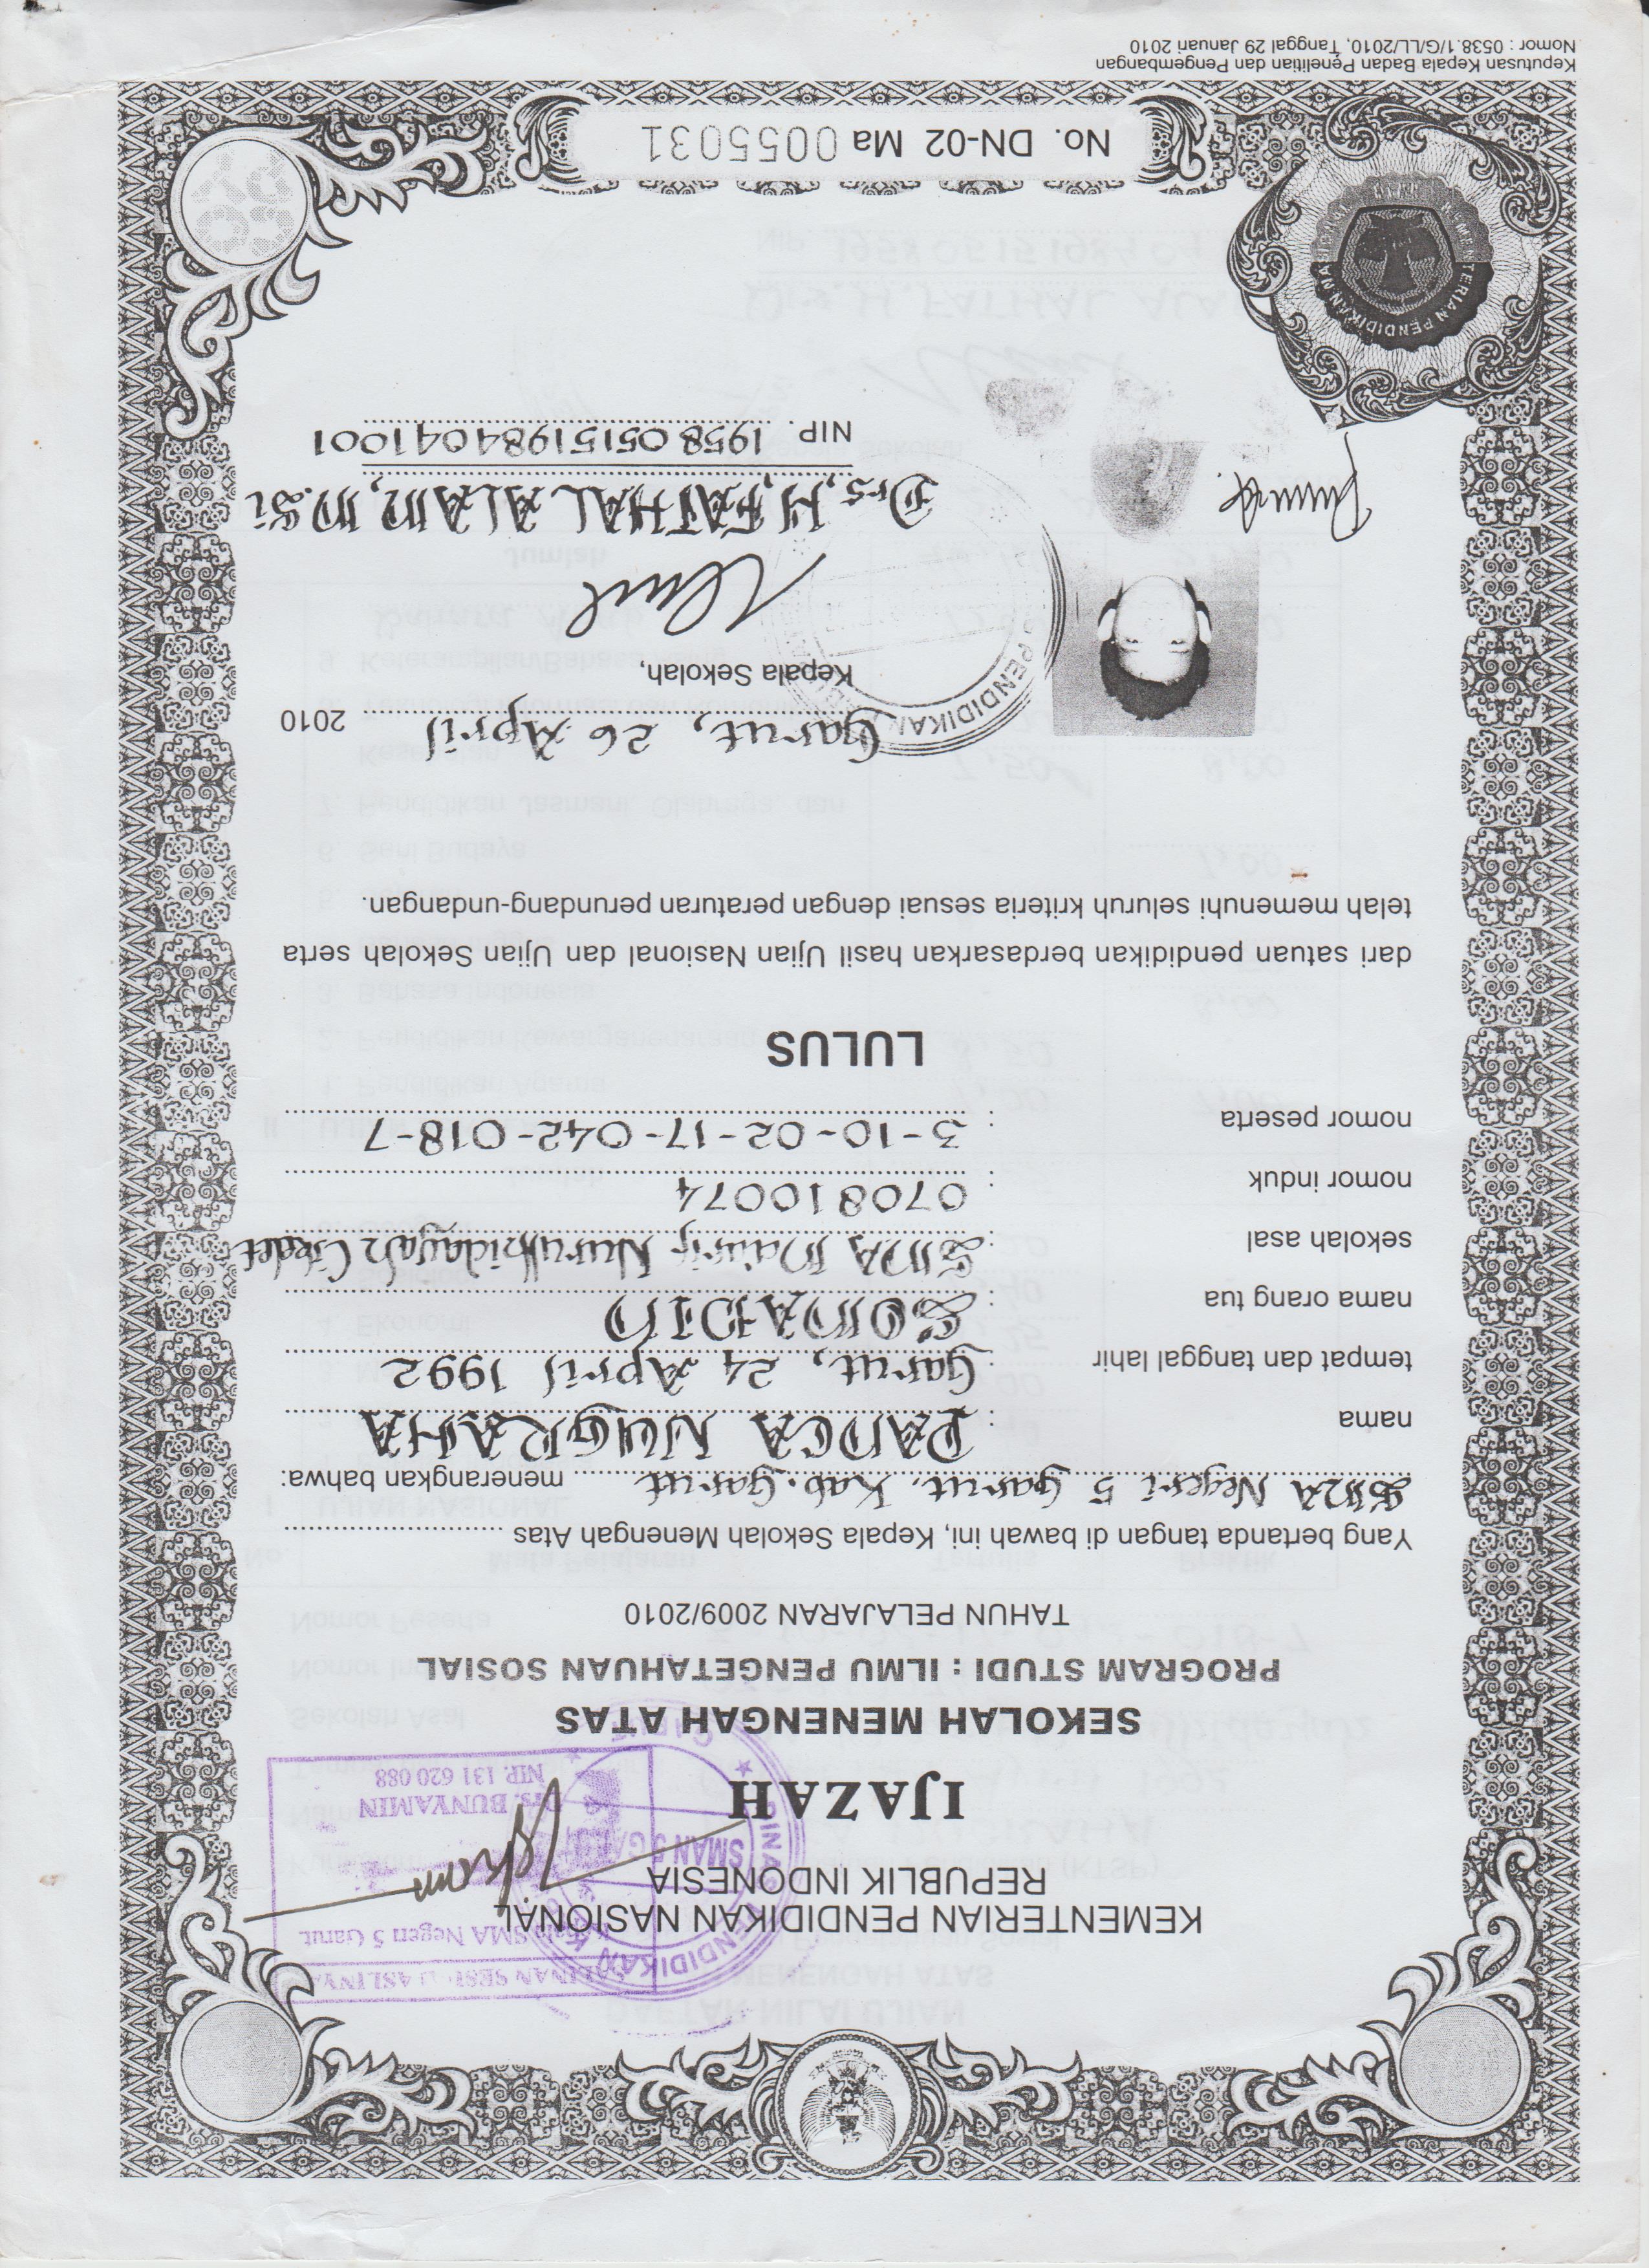 SALINAN SESUAI ASLINYA
Kepala SMA Negeri 5 Garut.
DINAS PENDIDIKAN
SMAN 5 GARUT
GARUT
Drs. BUNYAMIN
NIP. 131 620 088
KEMENTERIAN PENDIDIKAN NASIONAL
REPUBLIK INDONESIA
IJAZAH
SEKOLAH MENENGAH ATAS
PROGRAM STUDI : ILMU PENGETAHUAN SOSIAL
TAHUN PELAJARAN 2009/2010
Yang bertanda tangan di bawah ini, Kepala Sekolah Menengah Atas
SMA Negeri 5 Garut, Kab. Garut menerangkan bahwa:
nama : PANCA NUGRAHA
tempat dan tanggal lahir : Garut, 24 April 1992
nama orang tua : SOMADIN
sekolah asal : SMA Ma'arif Nurulhidayah Cikelet
nomor induk : 070810074
nomor peserta : 3-10-02-17-042-018-7
LULUS
dari satuan pendidikan berdasarkan hasil Ujian Nasional dan Ujian Sekolah serta
telah memenuhi seluruh kriteria sesuai dengan peraturan perundang-undangan.
Garut, 26 April 2010
Kepala Sekolah,
PENDIDIKAN
Drs, H, FATHAL ALAM, M.Si
NIP. 195805151984041001
No. DN-02 Ma 0055031
Keputusan Kepala Badan Penelitian dan Pengembangan
Nomor : 0538.1/G/LL/2010, Tanggal 29 Januari 2010